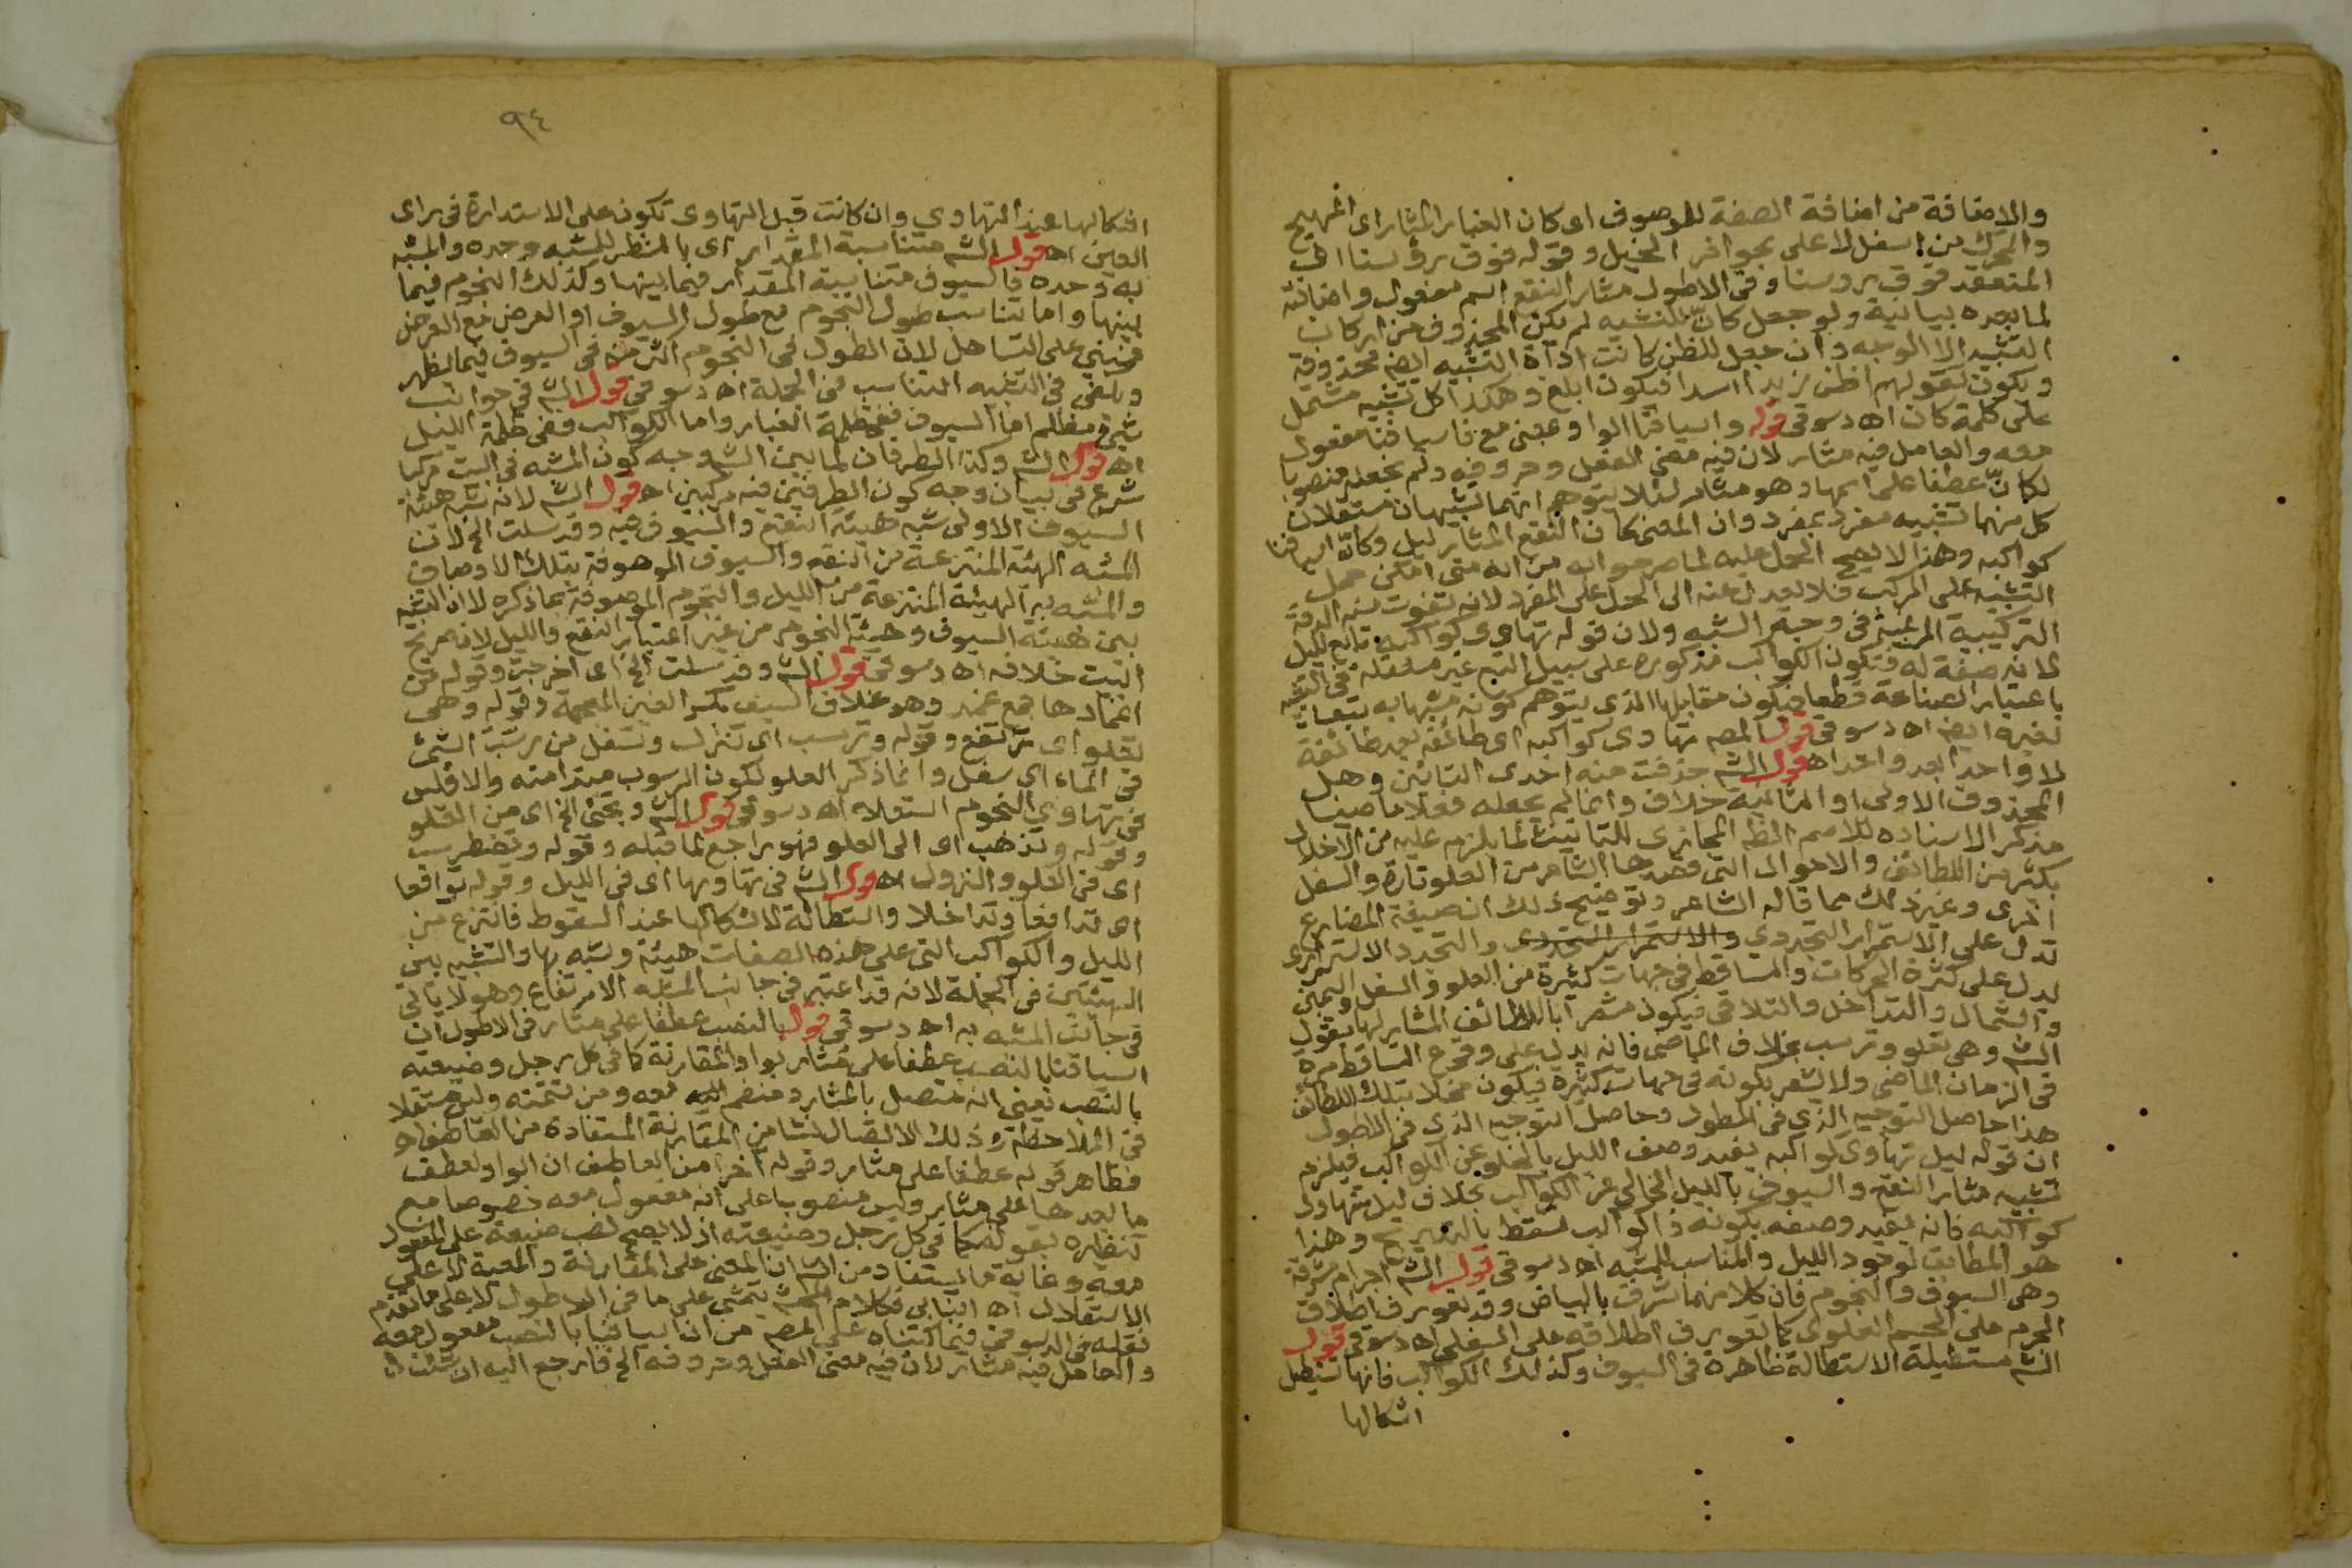 والاضافة من اضافة الصفة للموصوف اى كان الغبار المثار اى المهيج
والمحرك من اسفل لاعلى بحوافر الخيل وقوله فوق رؤسنا اى
المنعقد فوق رؤسنا وفى الاطول مثار النقع اسم مفعول واضافته
لما بعده بيانية ولو جعل كانّ للتشبيه لم يكن المحذوف من اركان
التشبيه الا الوجه وان جعل للظن كانت اداة التشبيه ايضا محذوفة
ويكون كقولهم اظن زيدا اسدا فيكون ابلغ وهكذا كل تشبيه مشتمل
على كلمة كان اه دسوقى قوله واسيافنا الواو بمعنى مع فاسيافنا مفعول
معه والعامل فيه مثار لان فيه معنى الفعل وحروفه ولم يجعله منصوبا
لكانّ عطفا على اسمها وهو مثار لئلا يتوهم انهما تشبيهان مستقلان
كل منهما تشبيه مفرد بمفرد وان المعنى كان النقع المثار ليل وكانّ اسيافنا
كواكبه وهذا لا يصح الحمل عليه لما صرحوا به من انه متى امكن حمل
التشبيه على المركب فلا يعدل عنه الى الحمل على المفرد لانه تفوت معه الدقة
التركيبية المرعية فى وجه الشبه ولان قوله تهاوى كواكبه تابع لليل
لانه صفة له فتكون الكواكب مذكورة على سبيل التبع غير مستقلة فى التشبيه
باعتبار الصناعة قطعا فيكون مقابلها الذى يتوهم كونه مشبها به تبعا
لغيره ايضا اه دسوقى قول المص تهاوى كواكبه اى طائفة بعد طائفة
لا واحدا بعد واحد اه قول الشم حذفت منه احدى التائين وهل
المحذوف الاولى او الثانية خلاف وانما لم يجعله فعلا ماضيا
مذكر الاسناده للاسم الظه المجازى للتانيث لما يلزم عليه من الاخلال
بكثير من اللطائف والاحوال التى قصدها الشاعر من العلو تارة والسفل
اخرى وغير ذلك مما قاله الشاعر وتوضيح ذلك ان صيغة المضارع
تدل على الاستمرار التجددى والاستمرار التجددى والتجدد الاستمرارى
يدل على كثرة الحركات والتساقط فى جهات كثيرة من العلو والسفل واليمين
والشمال والتداخل والتلاقى فيكون مشعرا باللطائف المشار لها بقول
الشم وهى تعلو وترسب بخلاف الماضى فانه يدل على وقوع التساقط مرة
فى الزمان الماضى ولا يشعر بكونه فى جهات كثيرة فيكون مخلا بتلك اللطائف
هذا حاصل التوجيه الذى فى المطول وحاصل التوجيه الذى فى الاطول
ان قوله ليل تهاوى كواكبه يفيد وصف الليل بالخلو عن الكواكب فيلزم
تشبيه مثار النقع والسيوف بالليل الخالى عن الكواكب بخلاف ليل تتهاوى
كواكبه فانه يفيد وصفه بكونه ذا كواكب تسقط بالتدريج وهذا
هو المطابق لوجود الليل والمناسب للمشبه اه دسوقى قول الشم اجرام مشرقة
وهى السيوف والنجوم فان كلا منهما مشرق بالبياض وقد تعورف اطلاق
الجرم على الجسم العلوى كما تعورف اطلاقه على السفلى اه دسوقى قول
الشم مستطيلة الاستطالة ظاهرة فى السيوف وكذلك الكواكب فانها تستطيل
اشكالها
٩٤
اشكالها عند التهاوى وان كانت قبل التهاوى تكون على الاستدارة فى راى
العين اه قول الشم متناسبة المقدار اى بالنظر للمشبه وحده والمشبه
به وحده فالسيوف متناسبة المقدار فيما بينها وكذلك النجوم فيما
بينها واما تناسب طول النجوم مع طول السيوف او العرض مع العرض
فمبنى على التساهل لان الطول فى النجوم اكثر منه فى السيوف فيما يظهر
ويكفى فى التشبيه التناسب فى الجملة اه دسوقى قول الشم فى جوانب
شئ مظلم اما السيوف ففى ظلمة الغبار واما الكواكب ففى ظلمة الليل
اه قول الشم وكذا الطرفان لما بين الشم وجه كون المشبه فى البيت مركبا
شرع فى بيان وجه كون الطرفين فيه مركبين اه قول الشم لانه شبه هيئة
السيوف الاولى شبه هيئة النقع والسيوف فيه وقد سلت الخ لان
المشبه الهيئة المنتزعة من النقع والسيوف الموصوفة بتلك الاوصاف
والمشبه به الهيئة المنتزعة من الليل والنجوم الموصوفة بما ذكره لا ان التشبيه
بين هيئة السيوف وهيئة النجوم من غير اعتبار النقع والليل لان صريح
البيت خلافه اه دسوقى قول الشم وقد سلت الخ اى اخرجت وقوله من
اغمادها جمع غمد وهو غلاف السيف بكسر الغين المعجمة وقوله وهى
تعلو اى ترتفع وقوله وترسب اى تنزل وتسفل من رسب الشئ
فى الماء اى سفل وانما ذكر العلو لكون الرسوب مبتدا منه والا فليس
فى تهاوى النجوم استعلاء اه دسوقى قول الشم وتجئ الخ اى من العلو
وقوله وتذهب اى الى العلو فهو راجع لما قبله وقوله وتضطرب
اى فى العلو والنزول اه قول الشم فى تهاويها اى فى الليل وقوله تواقعا
اى تدافعا وتداخلا واستطالة لاشكالها عند السقوط فانتزع من
الليل والكواكب التى على هذه الصفات هيئة وشبه بها والتشبيه بين
الهيئتين فى الجملة لانه قد اعتبر فى جانب المشبه الارتفاع وهو لا ياتى
فى جانب المشبه به اه دسوقى قوله بالنصب عطفا على مثار فى الاطول ان
اسيافنا بالنصب عطفا على مثار بواو المقارنة كما فى كل رجل وضيعته
بالنصب يعنى انه متصل بالمثار ومنضم اليه معه ومن تتمته وليس مستقلا
فى الملاحظة وذلك الاتصال نشا من المقارنة المستفادة من العاطف اه
فظاهر قوله عطفا على مثار وقوله آخرا من العاطف ان الواو لعطف
ما بعدها على مثار وليس منصوبا على انه مفعول معه خصوصا مع
تنظيره بقوله كما فى كل رجل وضيعته اذ لا يصح نصب ضيعة على المفعول
معه وغاية ما يستفاد من الشم ان المعنى على المقارنة والمعية لا على
الاستقلال اه انبابى فكلام الشم يتمشى على ما فى الاطول لا على ما تقدم
نقله عن الدسوقى فيما كتبناه على المصم من ان اسيافنا بالنصب مفعول معه
والعامل فيه مثار لان فيه معنى الفعل وحروفه الخ فارجع اليه ان شئت